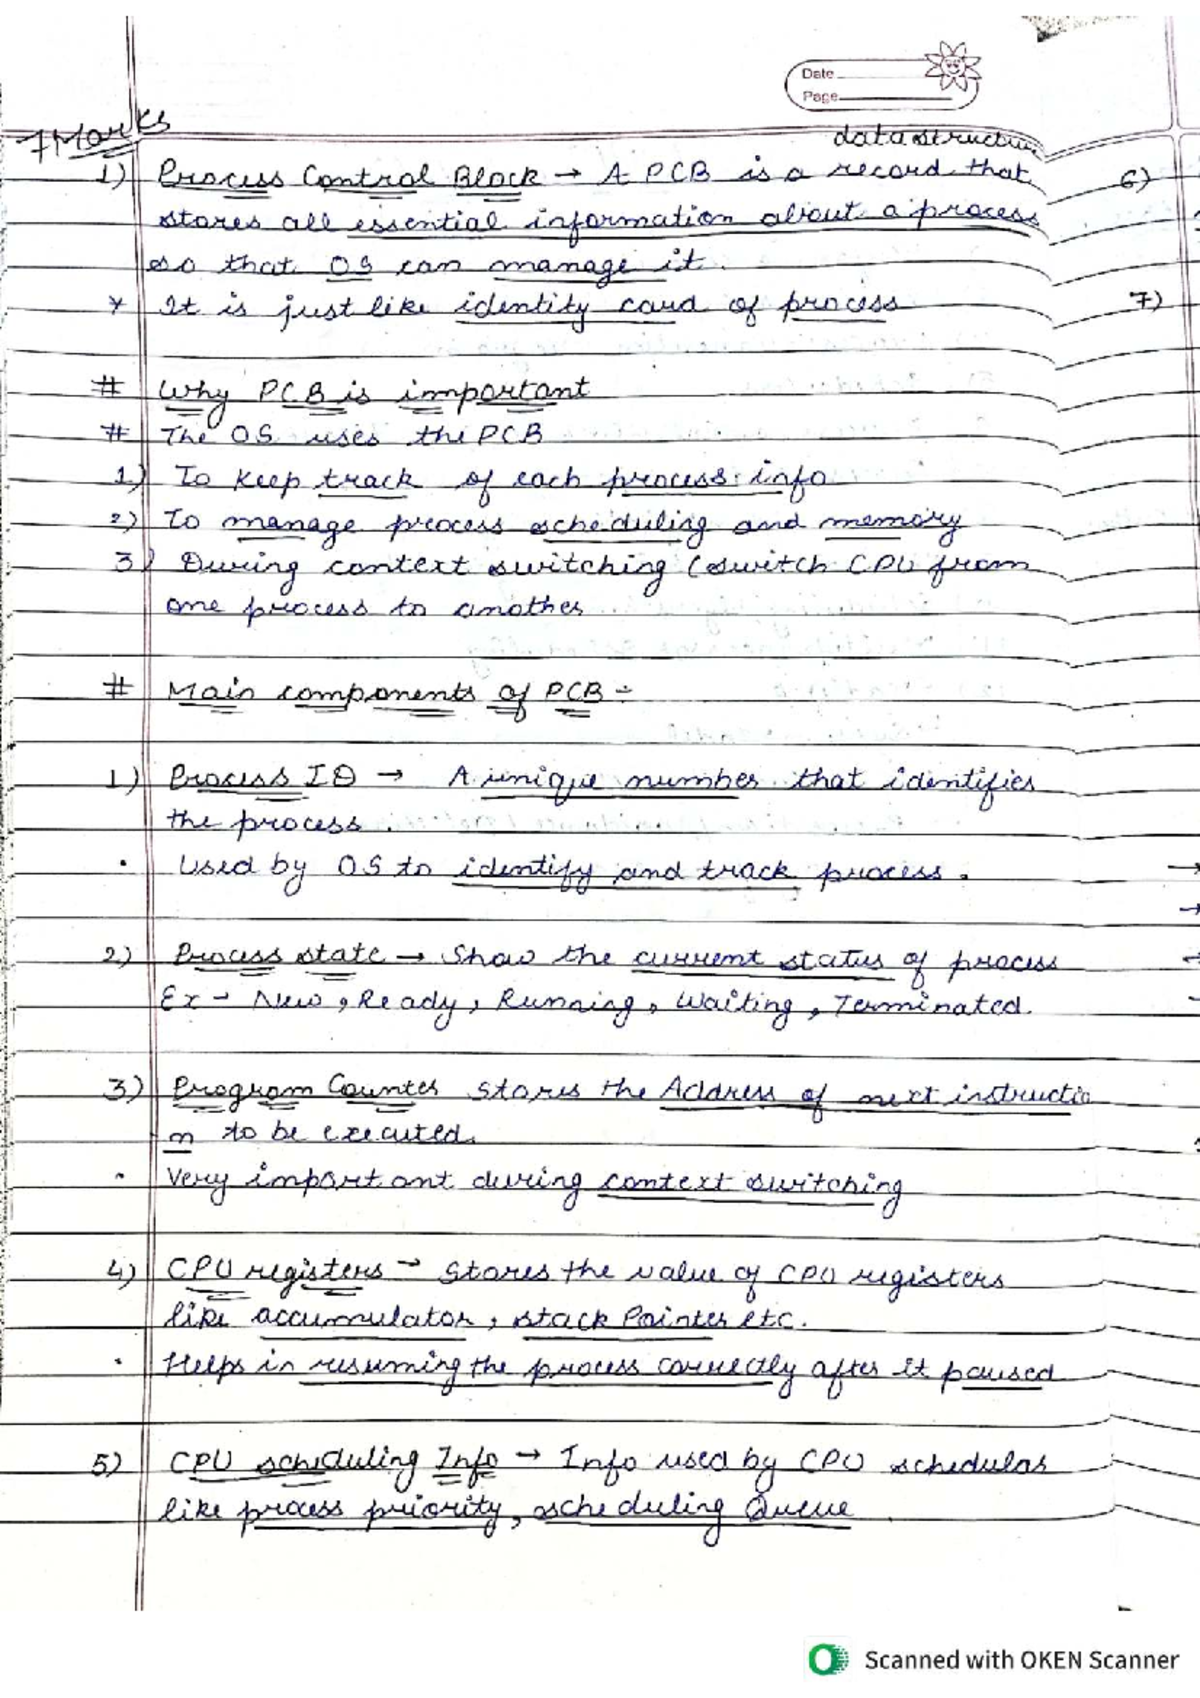 Date
Page
7 Marks
data structure
1) Process Control Block → A PCB is a record that
stores all essential information about a process
so that OS can manage it.
* It is just like identity card of process
# Why PCB is important
# The OS uses the PCB
1) To keep track of each process info
2) To manage process scheduling and memory
3) During context switching (switch CPU from
one process to another
# Main components of PCB :-
1) Process ID → A unique number that identifies
the process.
• Used by OS to identify and track process.
2) Process state → Show the current status of process
Ex → New, Ready, Running, Waiting, Terminated.
3) Program Counter stores the Address of next instructio
n to be executed.
• Very important during context switching
4) CPU registers → Stores the value of CPU registers
like accumulator, stack Pointer etc.
• Helps in resuming the process correctly after it paused
5) CPU scheduling Info → Info used by CPU schedulas
like process priority, scheduling Queue
6)
7)
Scanned with OKEN Scanner